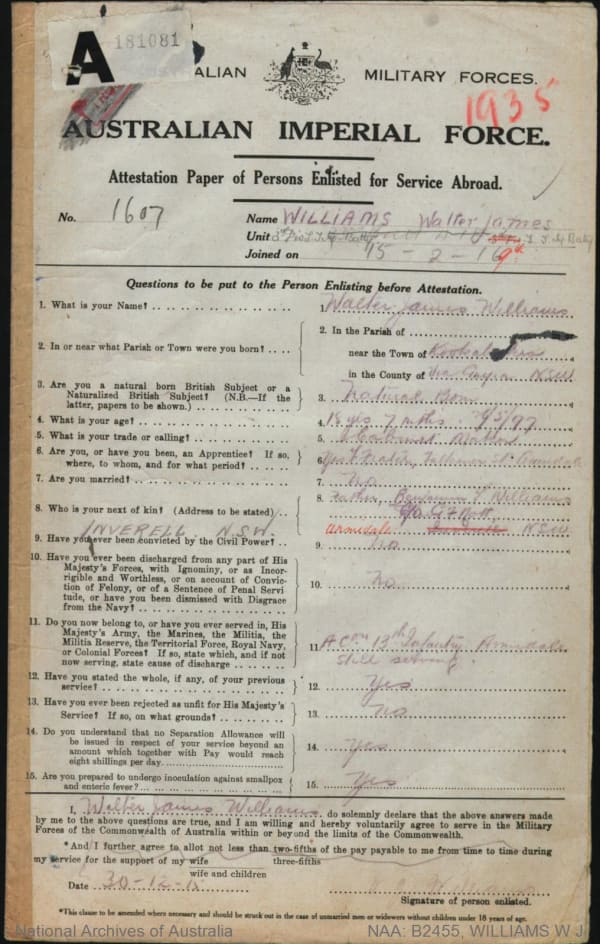 A
181081
ALIAN MILITARY FORCES.
1935
AUSTRALIAN IMPERIAL FORCE.
Attestation Paper of Persons Enlisted for Service Abroad.
No. 1607
Name WILLIAMS Walter James
Unit
Joined on 15-2-16
Questions to be put to the Person Enlisting before Attestation.
1. What is your Name?
1. Walter James Williams
2. In or near what Parish or Town were you born?
2. In the Parish of
near the Town of
in the County of N.S.W.
3. Are you a natural born British Subject or a
Naturalized British Subject? (N.B.—If the
latter, papers to be shown.)
3. Natural Born
4. What is your age?
4. 18 yrs 7 mths 9/5/97
5. What is your trade or calling?
5.
6. Are you, or have you been, an Apprentice? If so,
where, to whom, and for what period?
6. Armidale
7. Are you married?
7. No
8. Who is your next of kin? (Address to be stated)
8. Father, Benjamin Williams
Armidale N.S.W.
INVERELL N.S.W.
9. Have you ever been convicted by the Civil Power?
9. no
10. Have you ever been discharged from any part of His
Majesty's Forces, with Ignominy, or as Incor-
rigible and Worthless, or on account of Convic-
tion of Felony, or of a Sentence of Penal Servi
tude, or have you been dismissed with Disgrace
from the Navy?
10. no
11. Do you now belong to, or have you ever served in, His
Majesty's Army, the Marines, the Militia, the
Militia Reserve, the Territorial Force, Royal Navy,
or Colonial Forces? If so, state which, and if not
now serving, state cause of discharge
11. A Coy 13th Infantry Armidale
still serving.
12. Have you stated the whole, if any, of your previous
service?
12. Yes
13. Have you ever been rejected as unfit for His Majesty's
Service? If so, on what grounds?
13. no
14. Do you understand that no Separation Allowance will
be issued in respect of your service beyond an
amount which together with Pay would reach
eight shillings per day.
14. Yes
15. Are you prepared to undergo inoculation against smallpox
and enteric fever?
15. Yes
I, Walter James Williams do solemnly declare that the above answers made
by me to the above questions are true, and I am willing and hereby voluntarily agree to serve in the Military
Forces of the Commonwealth of Australia within or beyond the limits of the Commonwealth.
*And I further agree to allot not less than two-fifths of the pay payable to me from time to time during
my service for the support of my wife three-fifths
wife and children
Date 30-12-15
Williams
Signature of person enlisted.
*This clause to be amended where necessary and should be struck out in the case of unmarried men or widowers without children under 18 years of age.
National Archives of Australia
NAA: B2455, WILLIAMS W J